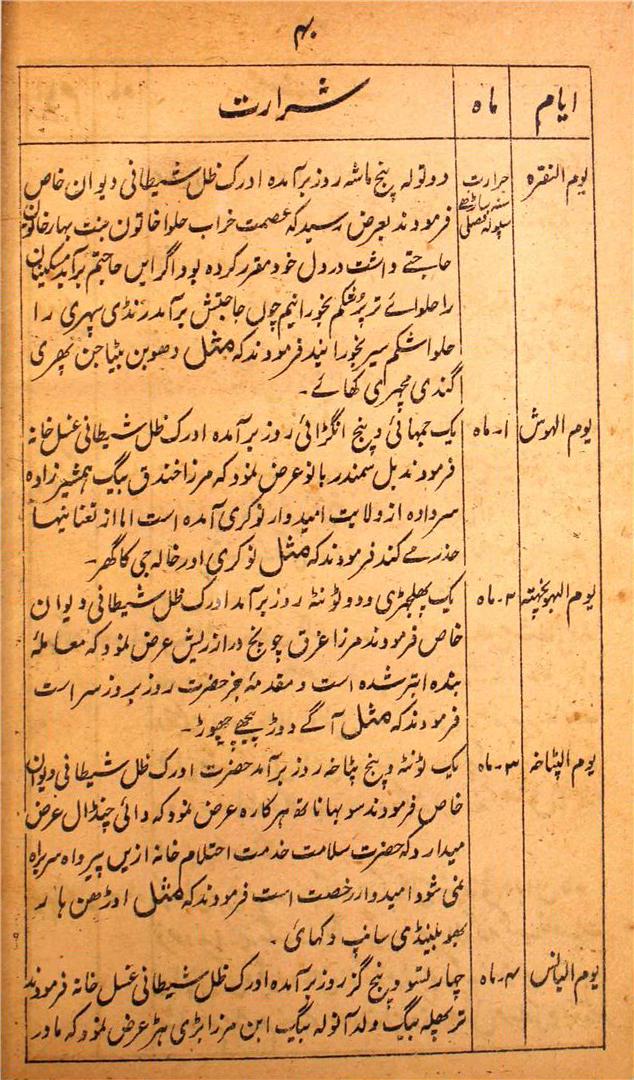 ۴۰
ایام ماہ شرارت
یوم النقرہ حرارت دو تولہ پنج ماشہ روز برآمدہ ادرک ظل شیطانی دیوان خاص
سنہ ساڑھے فرمودند بعرض رسید کہ عصمت خراب حلوا خاتون بنت بہار خاتون
سپولہ فصلی حاجتے داشت در دل خود مقرر کردہ بود اگر ایں حاجتم برآید مسکینان
را حلوائے تر پر شکم بخورانیم چوں حاجتش برآمد رنڈی سپہری را
حلوا شکم سیر بخورانید فرمودند کہ مثل دھوبن بٹیا جن پھری
گندی مچھری کھائے۔
یوم الہوش ۱۔ماہ یک جمہائی و پنج انگڑائی روز برآمدہ ادرک ظل شیطانی غسل خانہ
فرمودند بل سمندر بانو عرض نمود کہ مرزا خندق بیگ ہمشیرزادہ
سردادہ از ولایت امیدوار نوکری آمدہ است اما از تعناتیہا
حذر مے کند فرمودند کہ مثل نوکری اور خالہ جی کا گھر۔
یوم الہونچپتہ ۲۔ماہ یک پھلجھڑی و دو ٹونٹہ روز برآمد ادرک ظل شیطانی دیوان
خاص فرمودند مرزا عرق چونچ دراز ریش عرض نمود کہ معاملۂ
بندہ ابتر شدہ است و مقدمۂ خبر حضرت روز بروز سر است
فرمودند کہ مثل آگے دوڑ پیچھے چھوڑ۔
یوم الپٹاخہ ۳۔ماہ یک ٹونٹہ و پنج پٹاخہ روز برآمد حضرت ادرک ظل شیطانی دیوان
خاص فرمودند سوبہا ناتھ ہرکارہ عرض نمود کہ دائی چنڈال عرض
میدارد کہ حضرت سلامت خدمت احتلام خانہ ازیں پیر واہ سربراہ
نمی شود امیدوار رخصت است فرمودند کہ مثل اوڑھن ہار
بھو بلینڈی سانپ دکھائی۔
یوم البانس ۴۔ماہ چہار لستو و پنج گز روز برآمدہ ادرک ظل شیطانی غسل خانہ فرمودند
تربھلہ بیگ ولد آنولہ بیگ ابن مرزا بڑی ہڑ عرض نمود کہ مادر